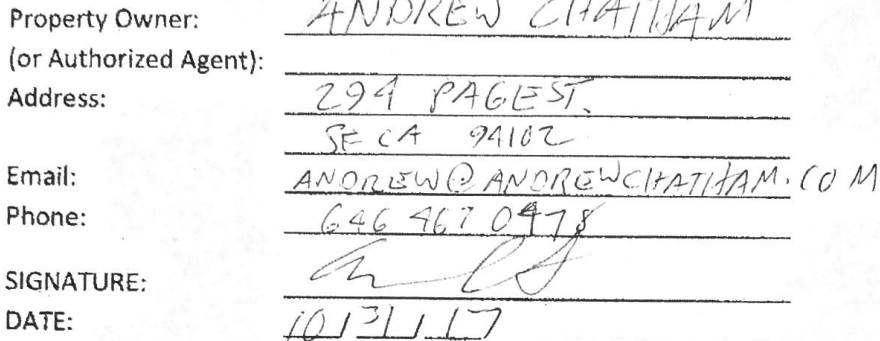 Property Owner: ANDREW CHATHAM
(or Authorized Agent):
Address: 294 PAGE ST.
SF CA 94102
Email: ANDREW@ANDREWCHATHAM.COM
Phone: 646 467 0478
SIGNATURE:
DATE: 10/31/17